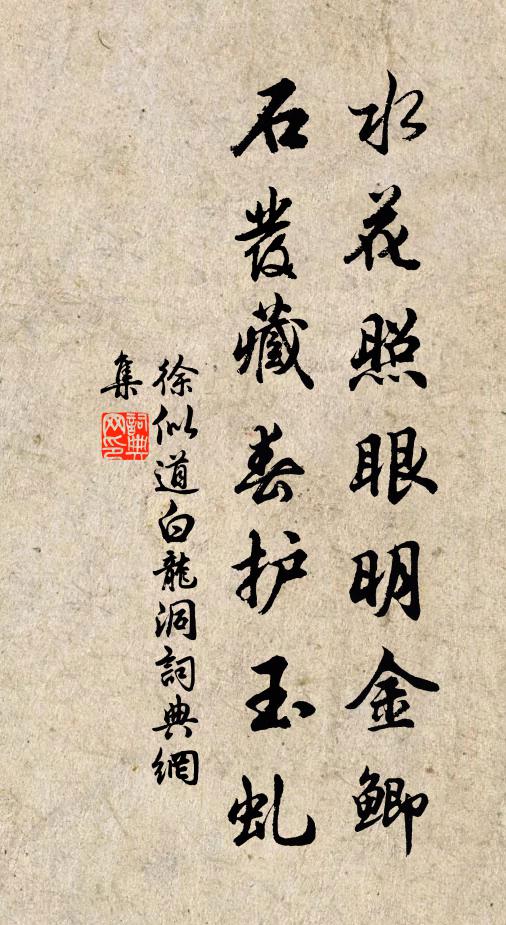 水花照眼明金鲫
石發藏春护玉虬
徐似道白龍洞詞典網
集
詞典
网印